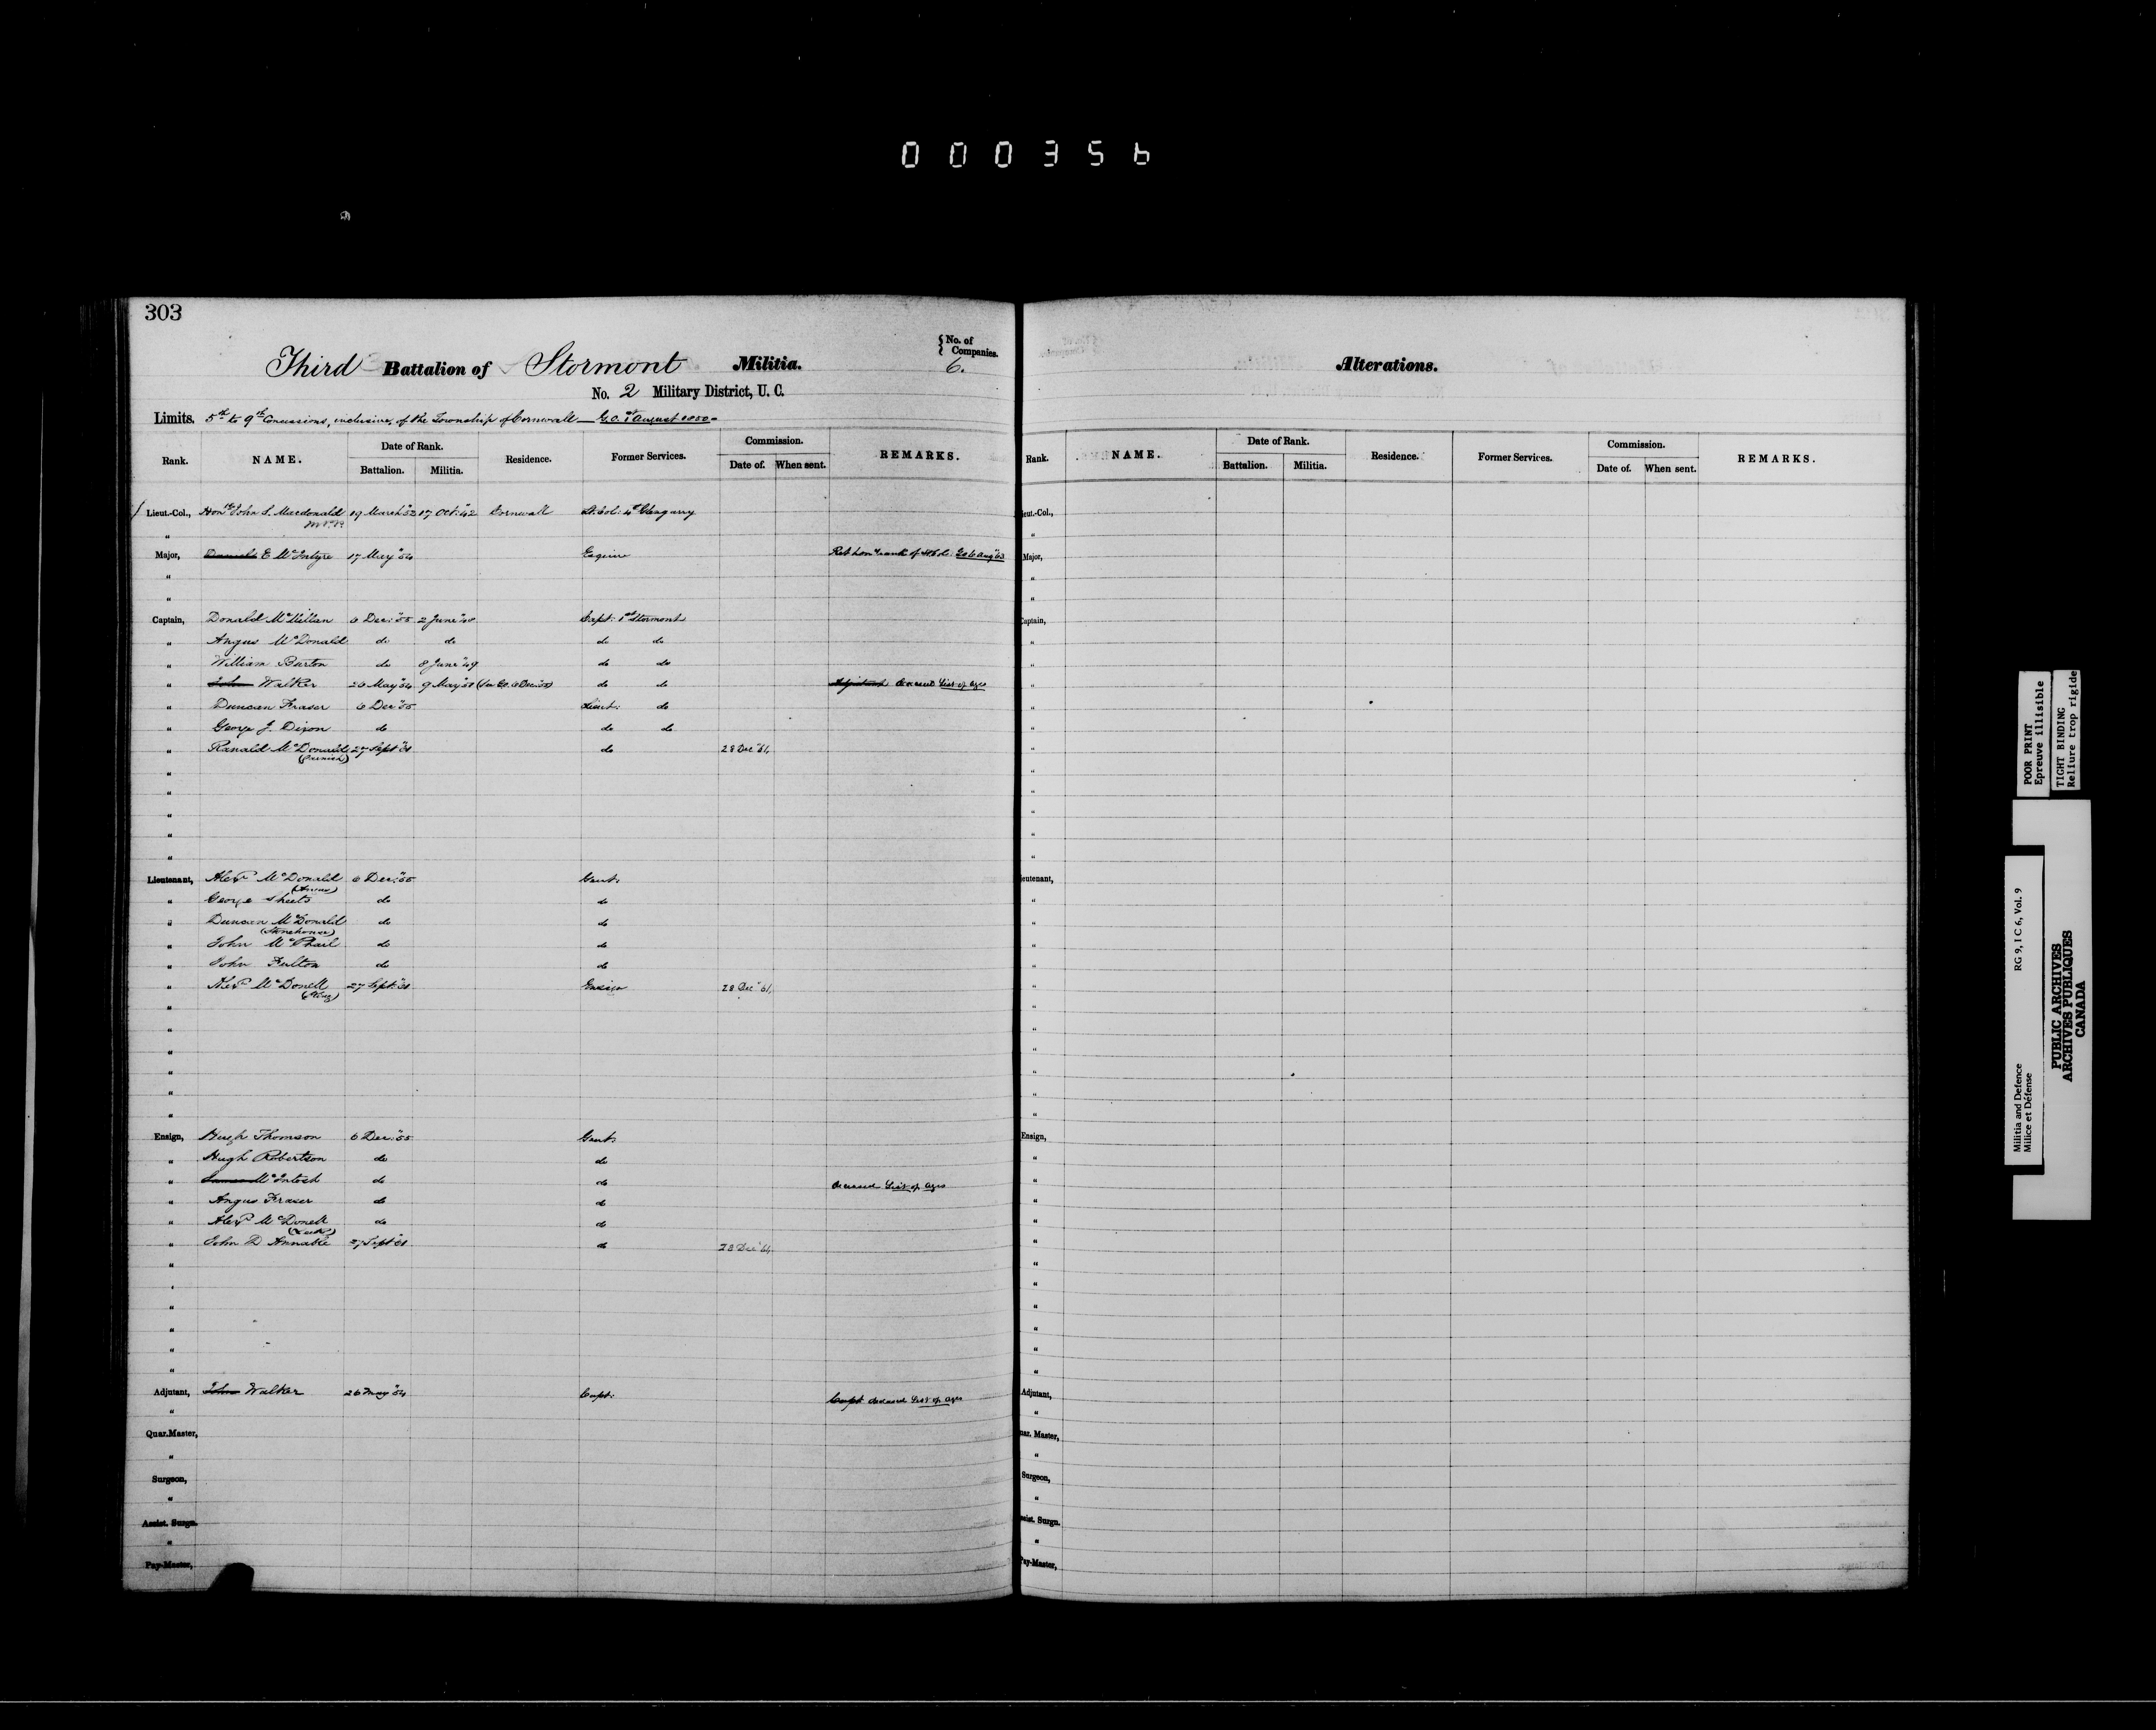 000356
303
{ No. of Companies.
Third Battalion of Stormont Militia. 6.
No. 2 Military District, U. C.
Limits. 5th to 9th Concessions, inclusive, of the Township of Cornwall — G.O. 1st August 1850 -
Rank. NAME. Date of Rank. Residence. Former Services. Commission. REMARKS.
Battalion. Militia. Date of. When sent.
Lieut.-Col., Honble John S. Macdonald 19 March "52 17 Oct: "42 Cornwall Lt. Col: 4th Glengary
M.P.P.
"
Major, Donald E McIntyre 17 May "54 Esquire Ret hon: rank of Lt Col: Go 6 Aug "63
"
"
Captain, Donald McMillan 6 Dec: "55 2 June "40 Capt: 1st Stormont
" Angus McDonald do do do do
" William Burton do 8 June "49 do do
" John Walker 26 May "54 9 May "50 (See GO. 6 Dec "55) do do Adjutant deceased List of Ages
" Duncan Fraser 6 Dec "55 Lieut: do
" George J. Dixon do do do
" Ranald McDonald 27 Sept "61 do 28 Dec "61,
"
"
"
"
"
Lieutenant, Alexr McDonald 6 Dec: "55 Gent:
" George Sheets do do
" Duncan McDonald do do
(Stonehouse)
" John McPhail do do
" John Fulton do do
" Alexr McDonell 27 Sept: "61 Ensign 28 Dec "61,
"
"
"
"
"
"
Ensign, Hugh Thomson 6 Dec: "55 Gent:
" Hugh Robertson do do
" James McIntosh do do deceased List of Ages
" Angus Fraser do do
" Alexr McDonell do do
" John D Annable 27 Sept "61 do 28 Dec "61,
"
"
"
"
"
"
Adjutant, John Walker 26 May "54 Capt: Capt deceased List of Ages
"
Quar.Master,
"
Surgeon,
"
Assist. Surgn.
"
Pay-Master,
Alterations.
Rank. NAME. Date of Rank. Residence. Former Services. Commission. REMARKS.
Battalion. Militia. Date of. When sent.
ieut.-Col.,
"
Major,
"
"
Captain,
"
"
"
"
"
"
"
"
"
"
"
ieutenant,
"
"
"
"
"
"
"
"
"
"
"
Ensign,
"
"
"
"
"
"
"
"
"
"
"
Adjutant,
"
uar. Master,
"
Surgeon,
"
ssist. Surgn.
"
Pay-Master,
POOR PRINT
Epreuve illisible
TIGHT BINDING
Reliure trop rigide
Militia and Defence RG 9, I C 6, Vol. 9
Milice et Défense
PUBLIC ARCHIVES
ARCHIVES PUBLIQUES
CANADA